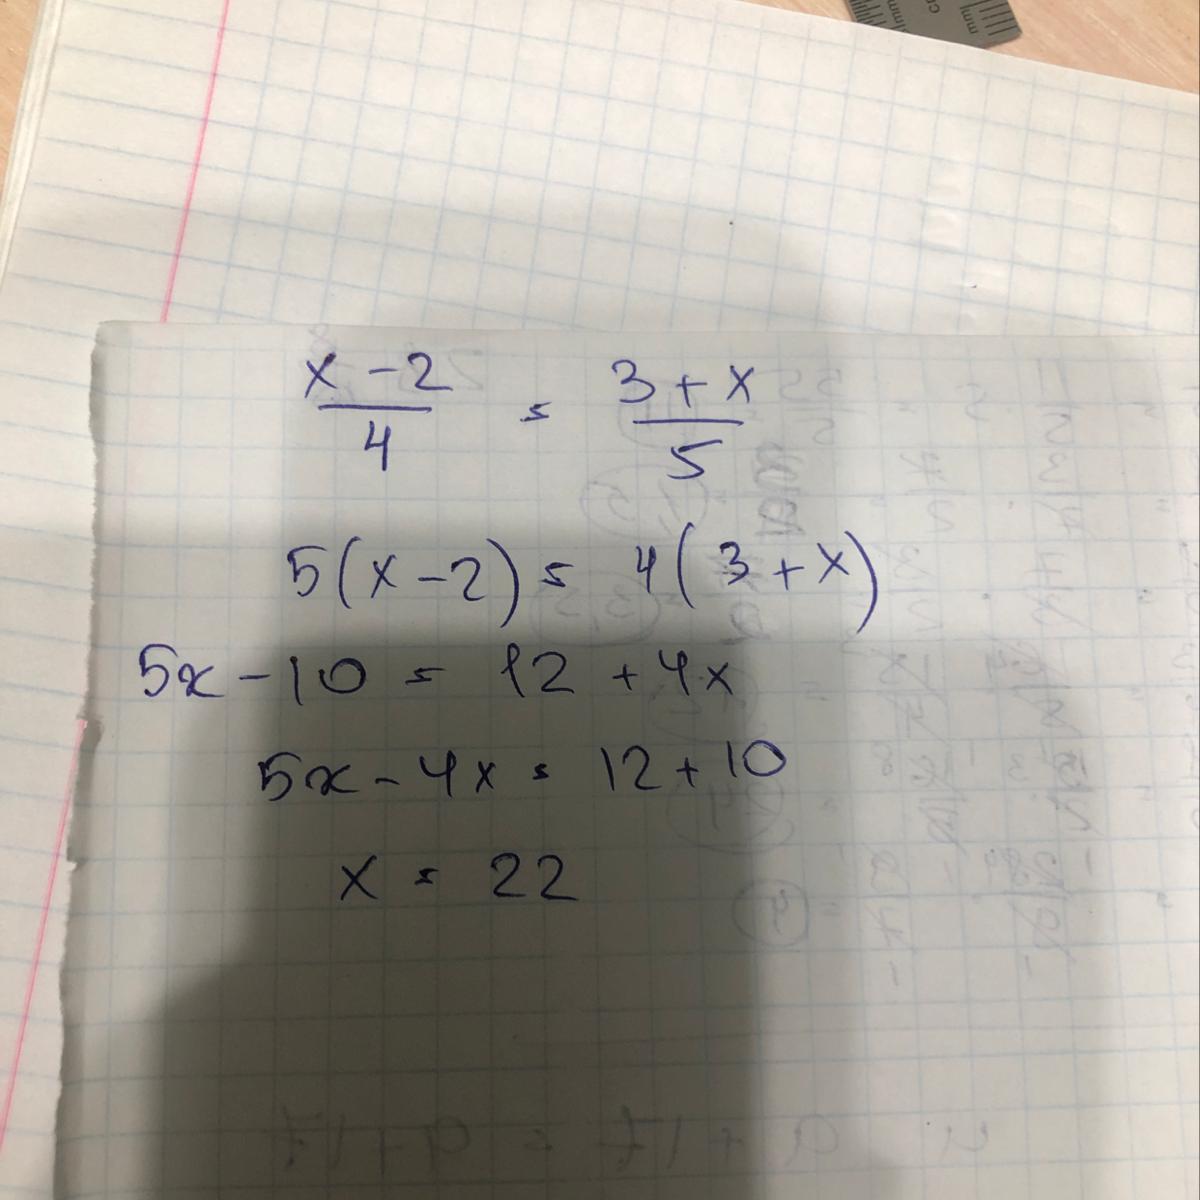 x - 2 / 4 = 3 + x / 5
5(x - 2) = 4(3 + x)
5x - 10 = 12 + 4x
5x - 4x = 12 + 10
x = 22